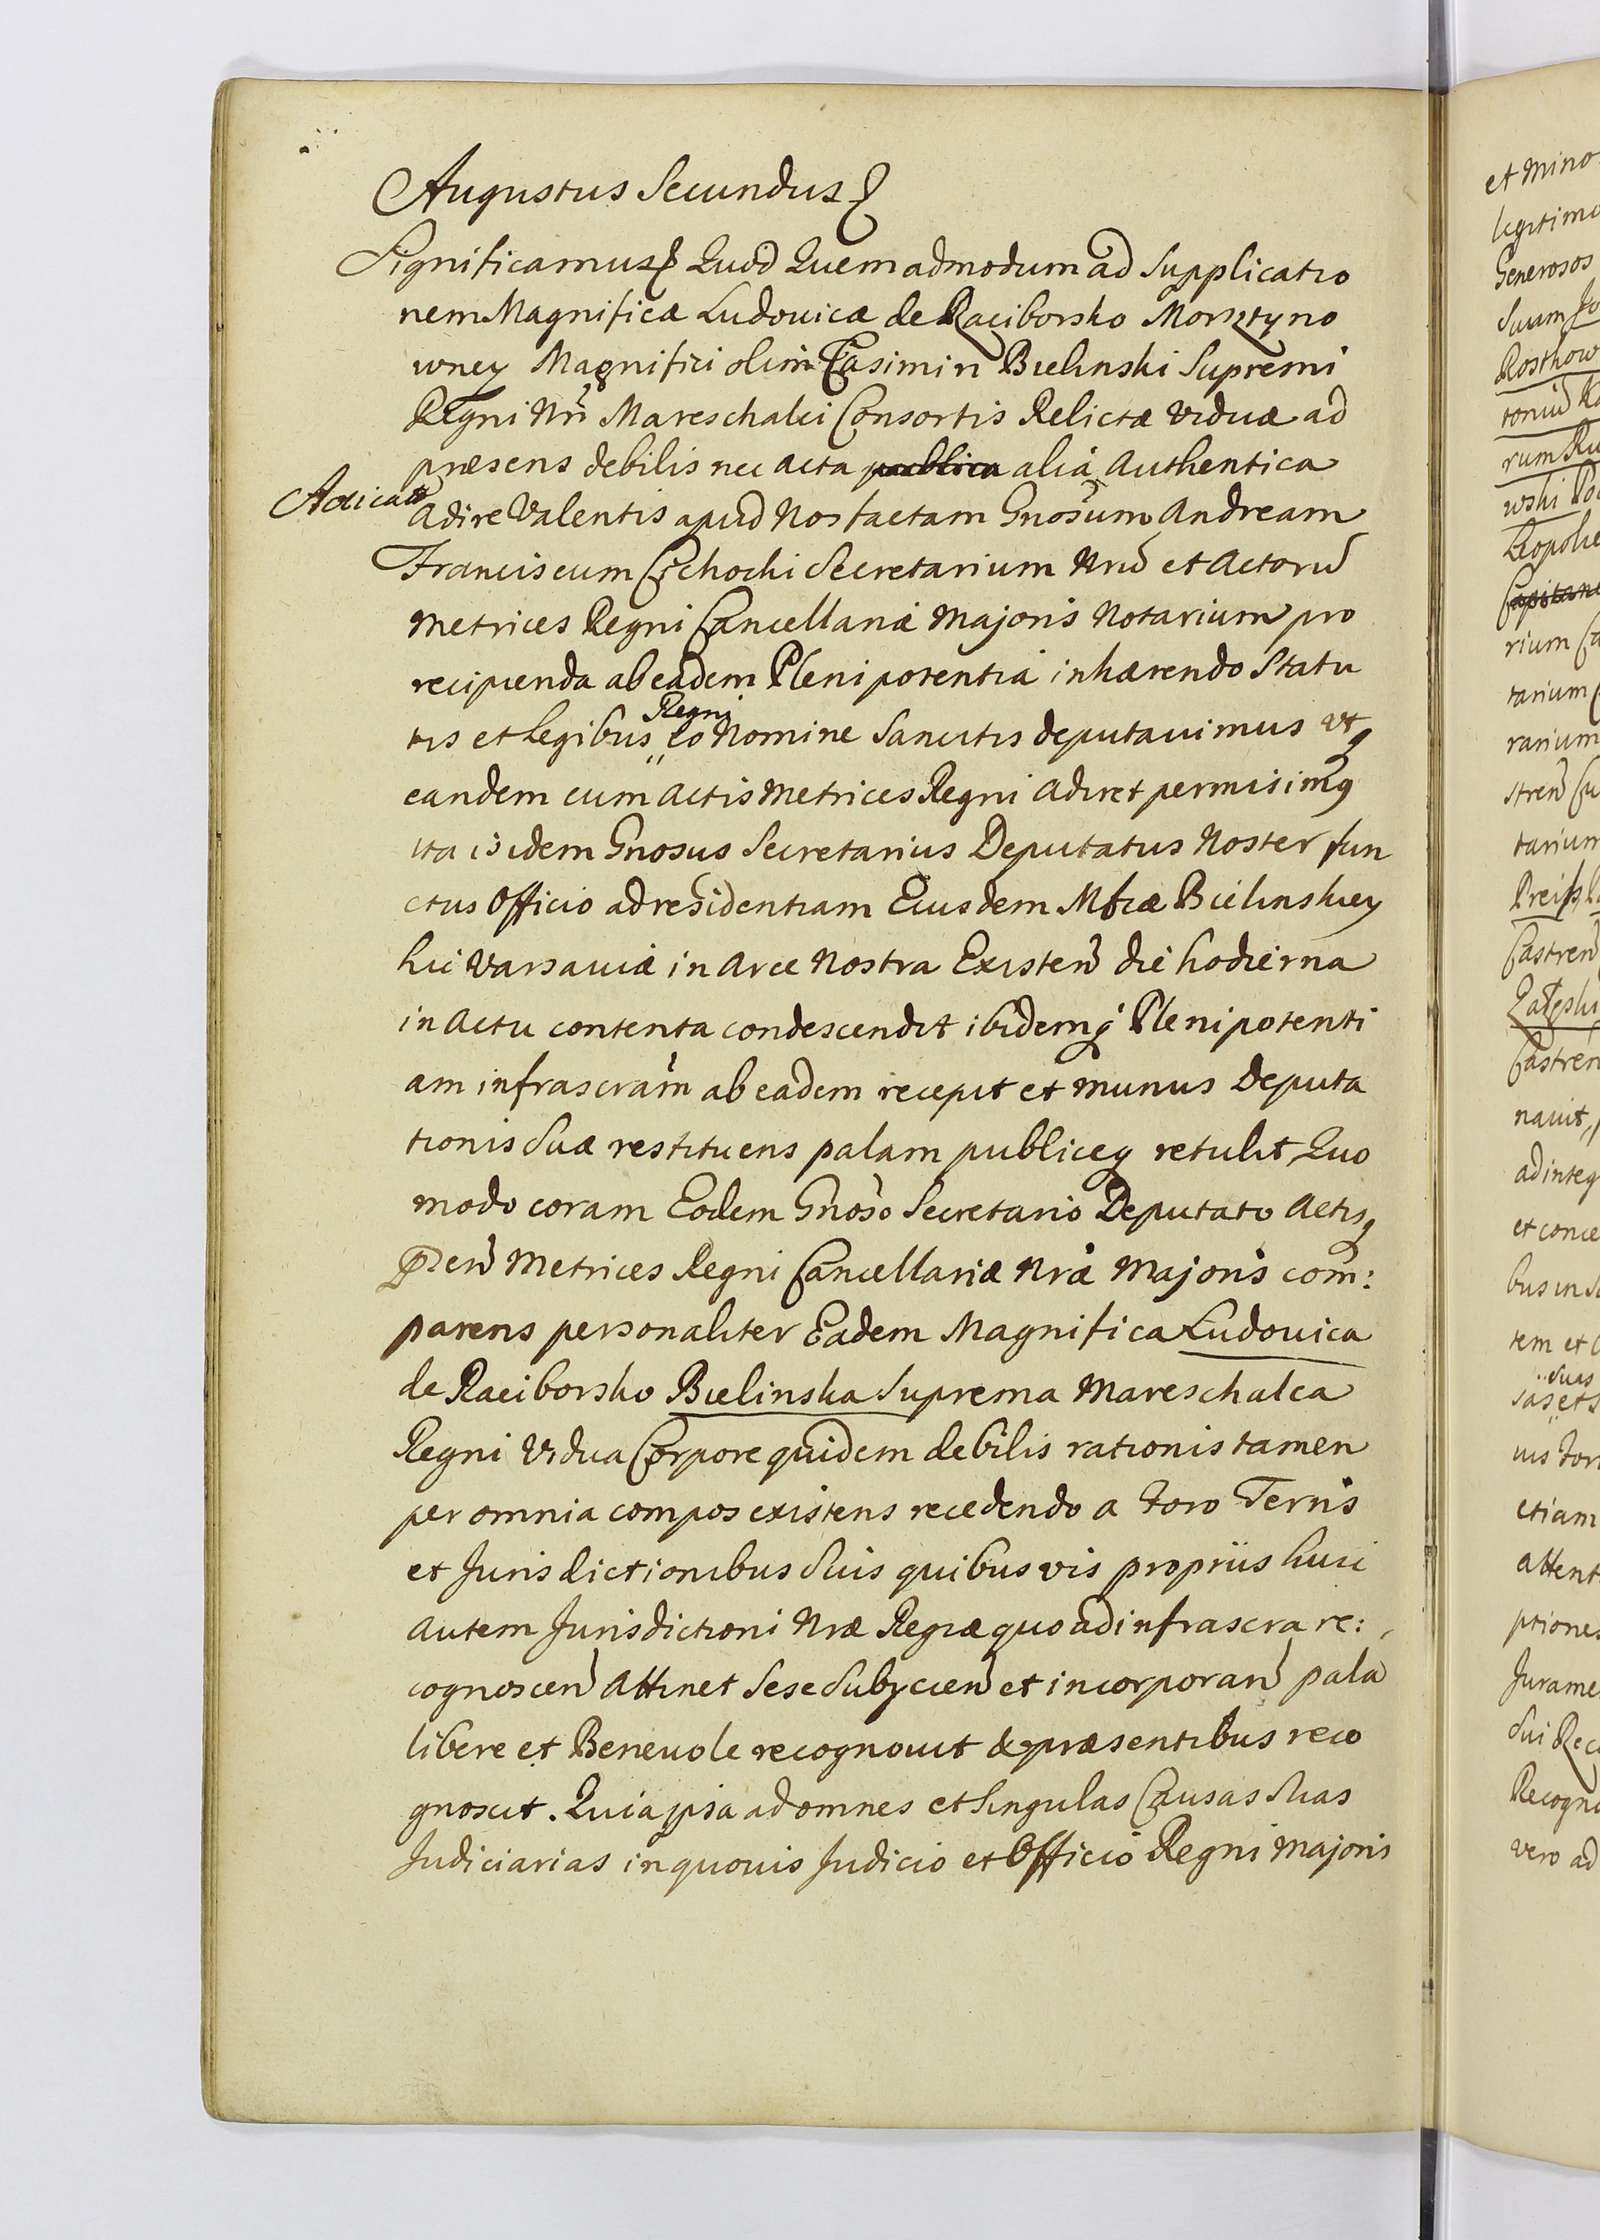 Augustus Secundus
Significamus Quod Quemadmodum ad Supplicatio
nem Magnificæ Ludovicæ de Raciborsko Morsztyno
wney Magnifici olim Casimiri Bielinski Supremi
Regni Nri Mareschalci Consortis Relictæ viduæ ad
præsens debilis nec acta publica alia Authentica
adire Valentis apud Nos factam Gnosum Andream
Franciscum Cichocki Secretarium Nrum et Actorum
Metrices Regni Cancellariæ Majoris Notarium pro
recipienda ab eadem Plenipotentia inhærendo Statu
Regni
tis et Legibus eo Nomine Sancitis deputavimus utq
eandem cum Actis Metrices Regni adiret permisimq
ita is idem Gnosus Secretarius Deputatus Noster fun
ctus Officio ad residentiam Eiusdem Mficæ Bielinskiey
hic Varsaviæ in Arce Nostra Existen die hodierna
in Actu contenta condescendit ibidemq Plenipotenti
am infrascram ab eadem recepit et munus Deputa
tionis Suæ restituens palam publiceq retulit, Quo
modo coram Eodem Gnoso Secretario Deputato Actisq
Metrices Regni Cancellariæ Nræ Majoris com:
parens personaliter Eadem Magnifica Ludovica
de Raciborsko Bielinska Suprema Mareschalca
Regni Vidua Corpore quidem debilis rationis tamen
per omnia compos existens recedendo a Foro Terris
et Jurisdictionibus Suis quibusvis propriis huic
autem Jurisdictioni Nræ Regiæ quo ad infrascra re:
cognoscen Attinet Sese Subjicien et incorporan pala
libere et Benevole recognovit & præsentibus reco
gnoscit. Quia ipsa ad omnes et Singulas Causas Suas
Judiciarias in quovis Judicio et Officio Regni Majoris
et Mino
legitimo
Generosos
Suum Jo
Rostkow
rum Ru
wski
Leopolie
Capitane
rium Ca
tarium
rarium
tarium
Preiss
Castren
Castren
navit,
ad integ
et conce
bus in
tem et
suas
sas et
etiam
attent
ptiones
Jurame
Sui Rec
Recogno
vero ad